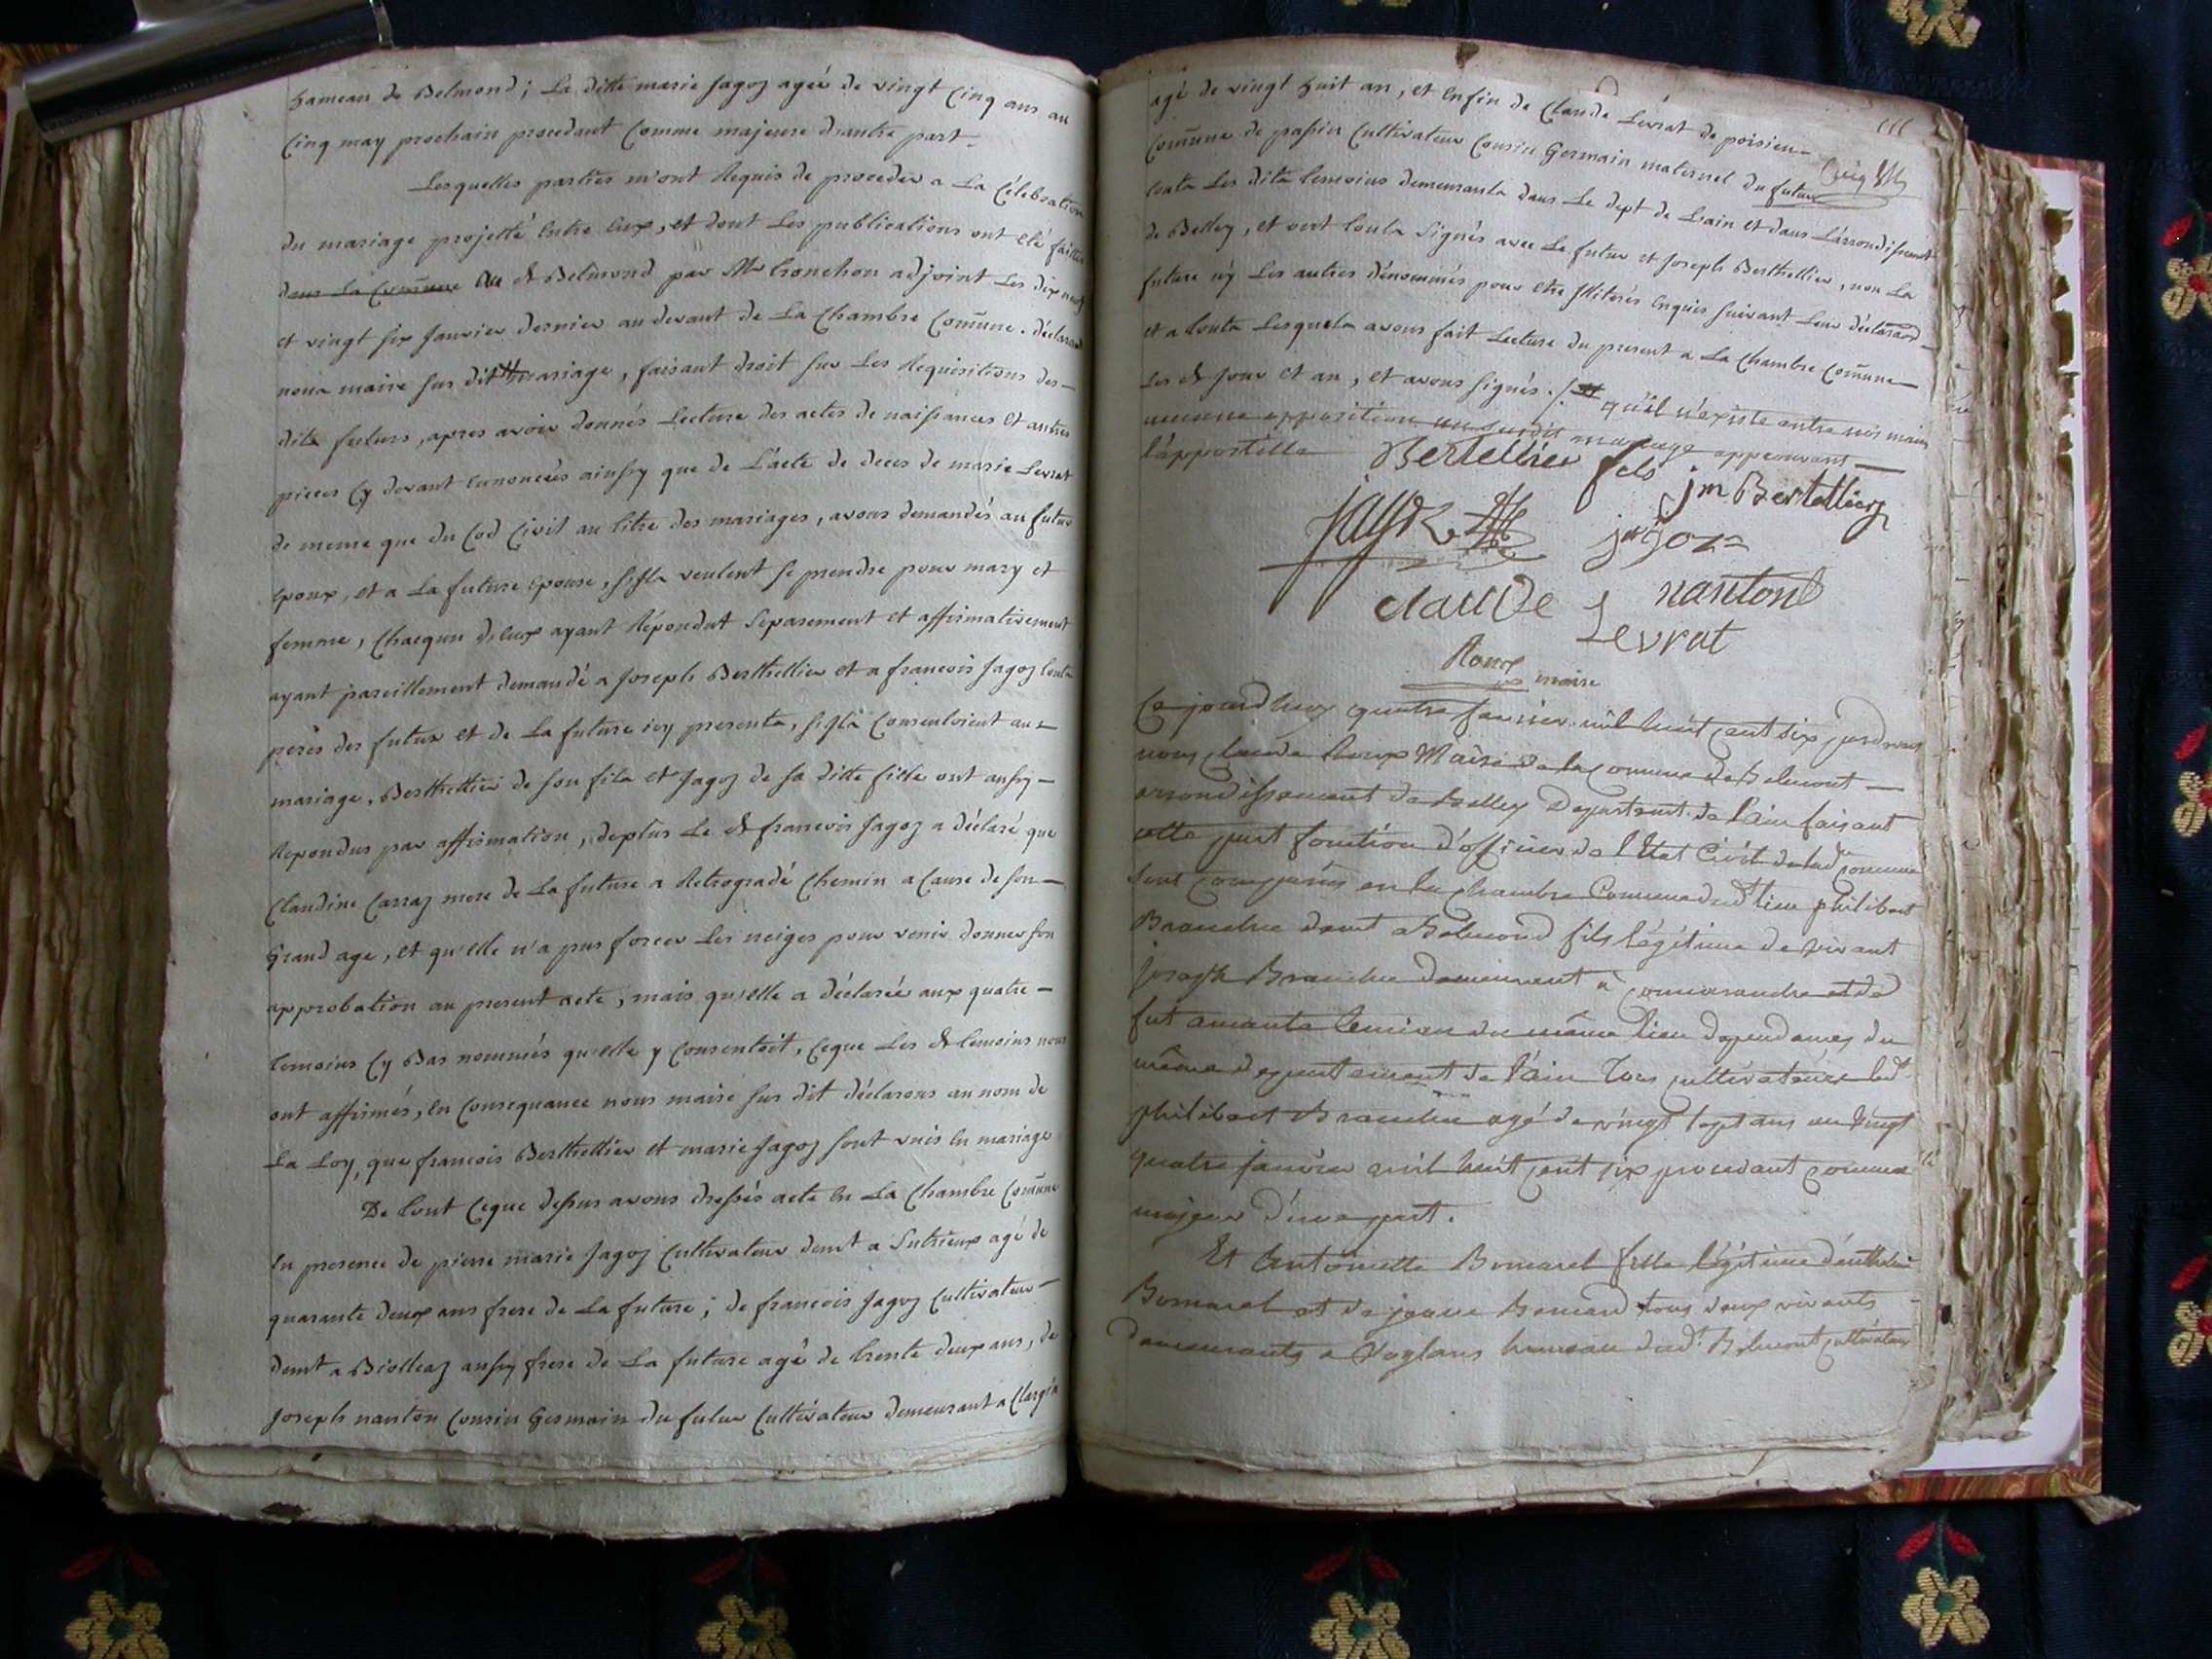 hameau de Belmond; La ditte marie Jagoz ageé de vingt Cinq ans au
Cinq may prochain procedant Comme majeure d'autre part.
Lesquelles parties m'ont Requis de proceder a La Célebration
du mariage projetté Entre Eux, et dont Les publications ont eté faittes
dans La Comune de Belmond par Mr tronchon adjoint Les dix neuf
et vingt six Janvier dernier au devant de La Chambre Comune. déclarant
nous maire sus dit mariage, faisant droit sur Les Requisitions des
dits futurs, apres avoir donnés Lecture des actes de naissances et autres
pieces Cy devant Ennoncées ainssy que de L'acte de deces de marie Levrat
de meme que du Cod Civil au titre des mariages, avons demandés au futur
Epoux, et a La future Epouse, s'ils veulent se prendre pour mary et
femme, Chacqun d'eux ayant Répondut Séparement et affirmativement
ayant pareillement demandé a Joseph Berthellier et a francois Jagoz touts
peres des futur et de La future icy presents, s'ils Consentoient au
mariage, Berthellier de son fils et Jagoz de sa ditte fille ont aussy
Repondus par affirmation, deplus Le dt francois Jagoz a déclaré que
Claudine Carraz mere de La future a Retrogradé Chemin a Cause de son
Grand age, et qu'elle n'a pus forcer Les neiges pour venir donner son
approbation au present acte, mais qu'elle a déclarée aux quatre
temoins Cy Bas nommés qu'elle y Consentoit, Ceque Les dt temoins nous
ont affirmés, En Consequance nous maire sus dit déclarons au nom de
La Loy, que francois Berthellier et marie Jagoz sont unis En mariage
De tout Ceque dessus avons dressés acte En La Chambre Comune
En presence de pierre marie Jagoz Cultivateur demt a Sutrieux agé de
quarante deux ans frere de La future; de francois Jagoz Cultivateur
demt a Biolleaz aussy frere de La future agé de trente deux ans, de
Joseph nanton Cousin Germain du futur Cultivateur demeurant a
agé de vingt huit an, et Enfin de Claude Levrat de poisieu
Comune de passin Cultivateur Cousin Germain maternel du futur
touts Les dits temoins demeurants dans Le dept de L'ain et dans L'arrondissement
de Belley, et sont touts Signés avec Le futur et Joseph Berthellier, non La
future n'y Les autres dénommés pour etre illiterés Enquis suivant Leur déclaraon
et a touts Lesquels avons fait Lecture du present a La Chambre Comune
Les dt Jour et an, et avons signés. qu'il n'existe entre nos mains
aucune opposition au susdit mariage approuvant
l'appostille
Bertellier fils
jm Bertellier
jagoz
nanton
Claude Levrat
Roux maire
Ce jourdhuy quatre fevrier mil huit cent six pardevant
nous Claude Roux Maire de la Comune de Belmont
arrondissement de Belley Departemt de l'ain faisant
cette part fonction d'officier de l'Etat Civil de lade Comune
sont comparus en la chambre Comune dud lieu philibert
demt a Belmond fils légitime de vivant
joseph demeurant à et de
fut du même lieu dependances du
même departement de l'ain Tous cultivateurs led
philibert agé de vingt sept ans au vingt
quatre janvier mil huit cent six procedant comme
majeur d'une part.
Et Antoinette Bomarel fille légitime
Bomarel et de jeanne tous deux vivants
demeurants a Voglans hameau dud. Belmont cultivateurs